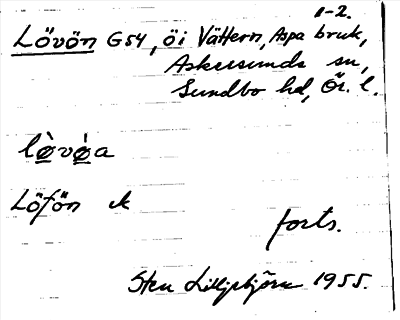 1-2.
Lövön G54, öi Vättern, Aspa bruk,
Askersunds sn,
Sundbo hd, Ör. l.
lø̀vǿa
Löfön ek
forts.
Sten Lilljebjörn 1955.